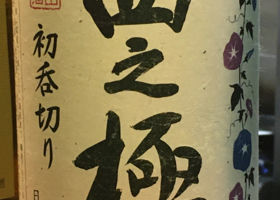 之極
初呑切り